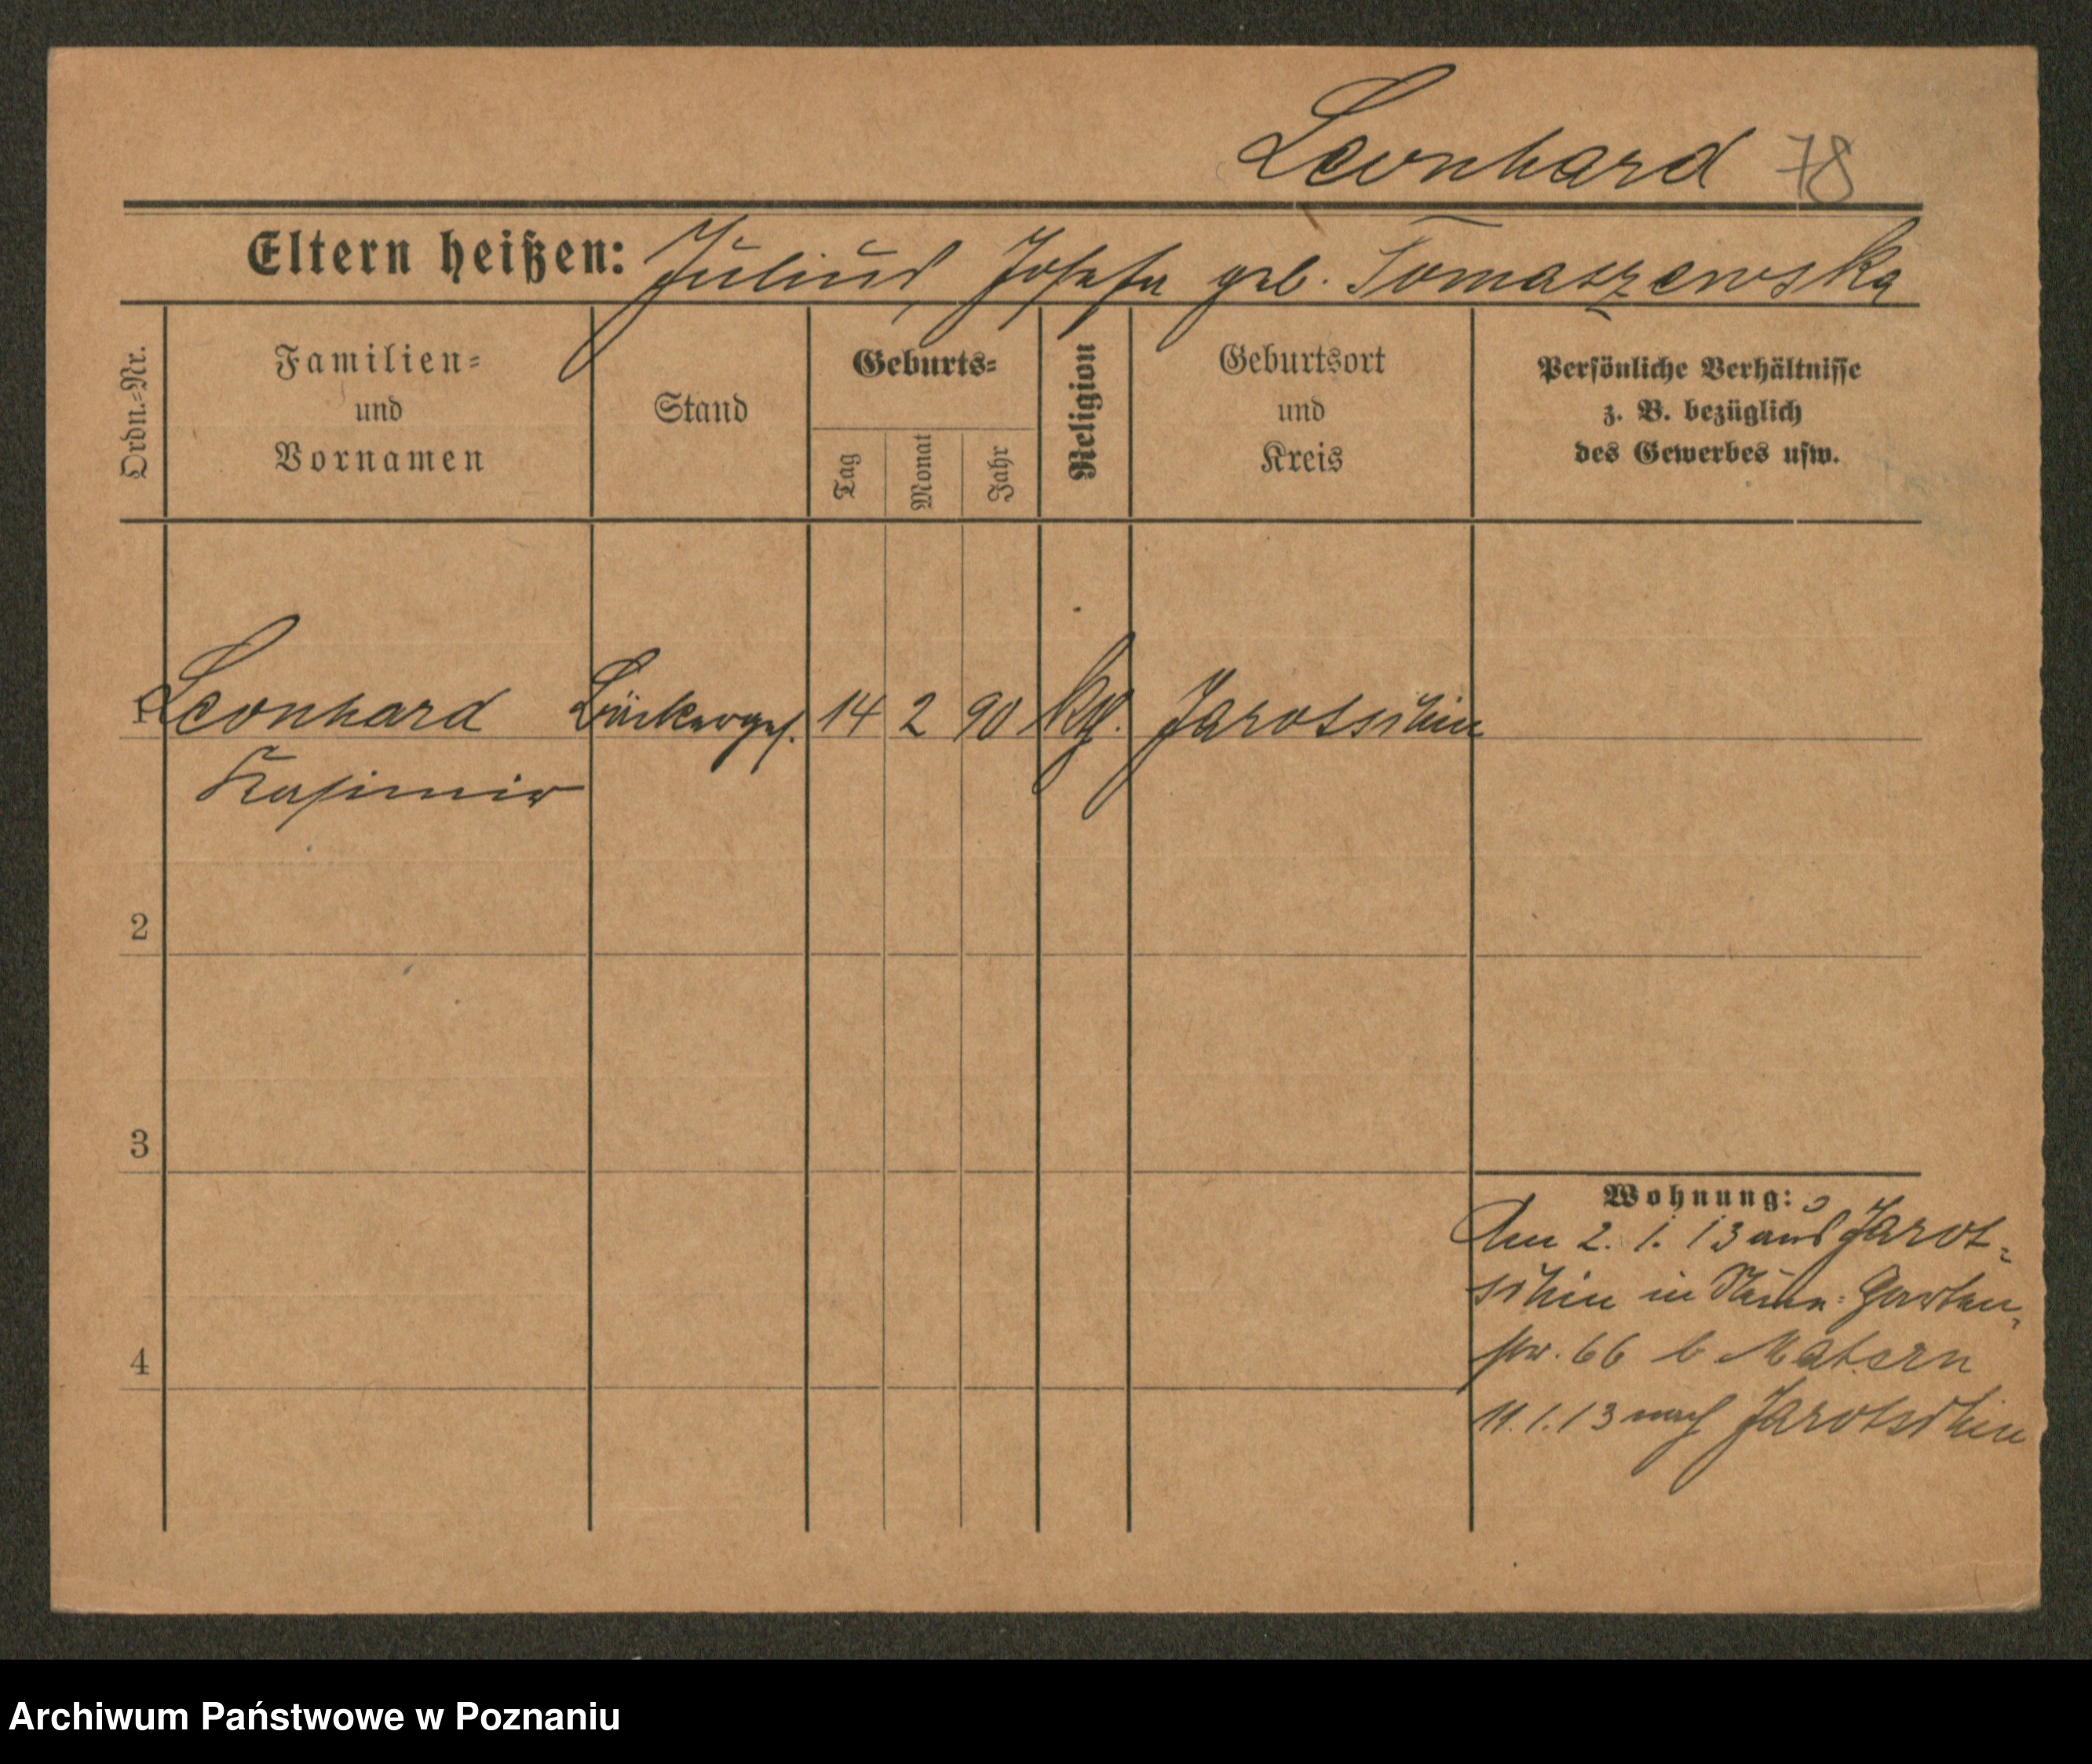 Leonhard 78
Eltern heißen: Julius, Josefa geb. Tomaszewska
Ordn.-Nr.
Familien-
und
Vornamen
Stand
Geburts-
Tag
Monat
Jahr
Religion
Geburtsort
und
Kreis
Persönliche Verhältnisse
z. B. bezüglich
des Gewerbes usw.
1 Leonhard Bäckerges. 14 2 90 kth. Jarotschin
Kasimir
2
3
4
Wohnung:
Am 2. 1. 13 aus Jarot-
schin in Garten-
str. 66 b Matern
11.1.13 nach Jarotschin
Archiwum Państwowe w Poznaniu